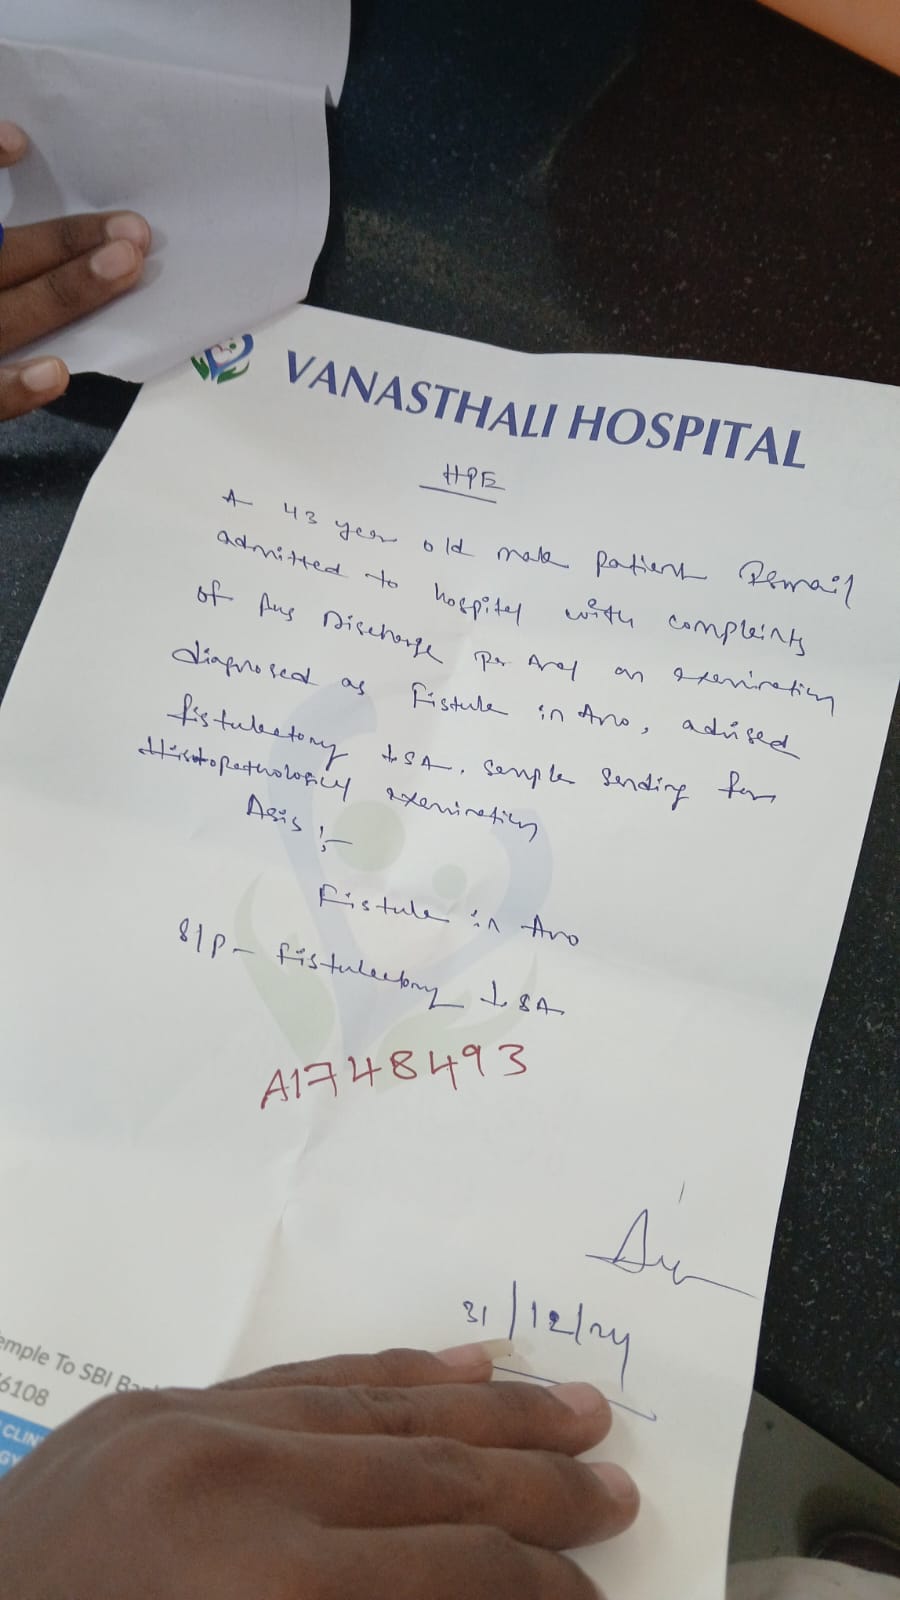 VANASTHALI HOSPITAL
HPE
A 43 year old male patient Ismail
admitted to hospital with complaints
of Pus Discharge Per Anal on examination
diagnosed as Fistula in Ano, advised
fistulectomy ↓ SA. Sample Sending for
Histopathology examination
Δsis :-
Fistula in Ano
S/P - fistulectomy ↓ SA
A1748493
31/12/24
emple To SBI Ban
6108
CLIN
GY